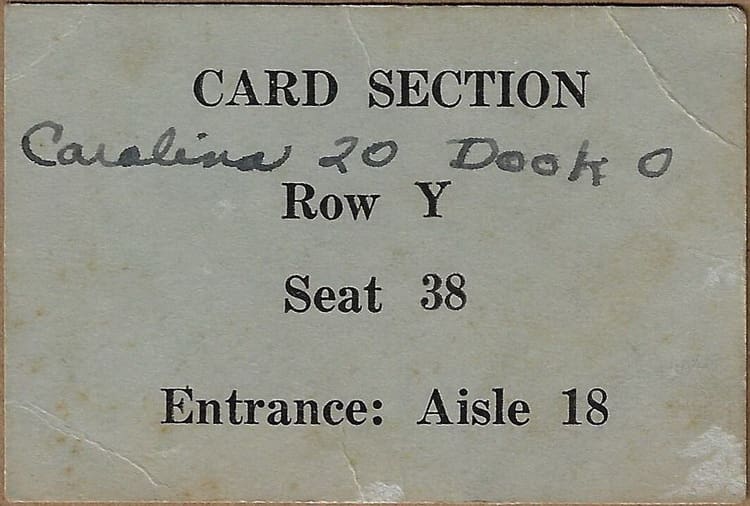 CARD SECTION
Carolina 20 Dook 0
Row Y
Seat 38
Entrance: Aisle 18